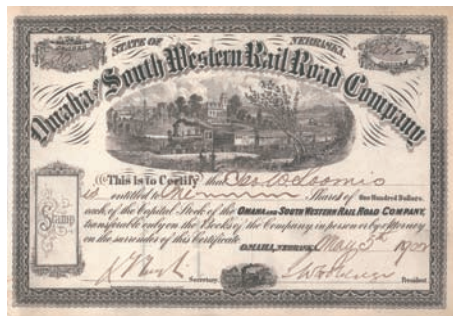 STATE OF NEBRASKA.
Omaha and South Western Rail Road Company
This is to Certify that Geo W Loomis
is entitled to One Shares of One Hundred Dollars,
each of the Capital Stock of the OMAHA AND SOUTH WESTERN RAIL ROAD COMPANY,
transferable only on the Books of the Company in person or by attorney
on the surrender of this Certificate.
Stamp
OMAHA, NEBRASKA, May 5th
Secretary.
President